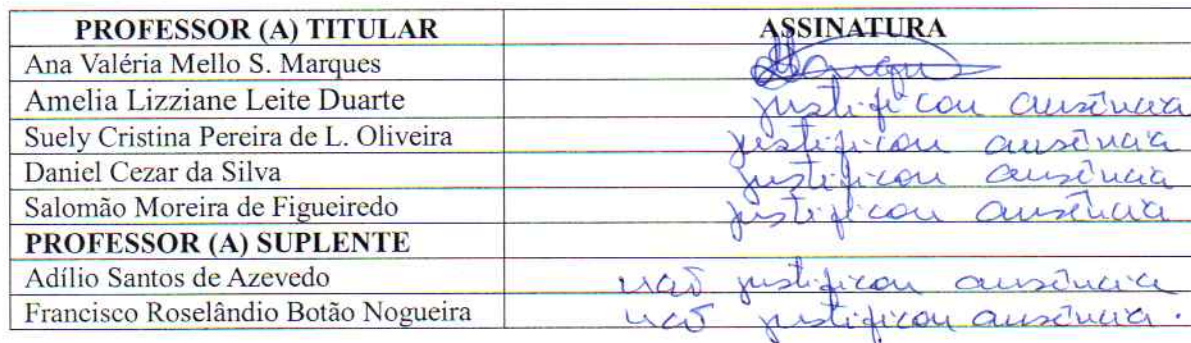 PROFESSOR (A) TITULAR ASSINATURA
Ana Valéria Mello S. Marques
Amelia Lizziane Leite Duarte justificou ausência
Suely Cristina Pereira de L. Oliveira justificou ausência
Daniel Cezar da Silva justificou ausência
Salomão Moreira de Figueiredo justificou ausência
PROFESSOR (A) SUPLENTE
Adílio Santos de Azevedo não justificou ausência
Francisco Roselândio Botão Nogueira não justificou ausência.